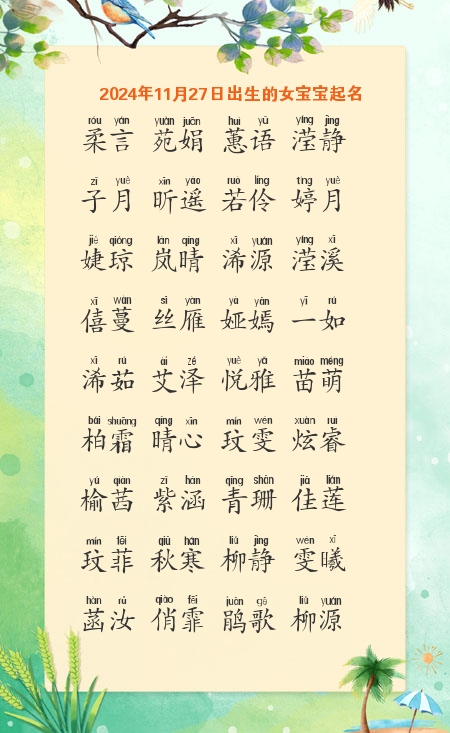 2024年11月27日出生的女宝宝起名
róu yán yuàn juān huì yǔ yíng jìng
柔言 苑娟 蕙语 滢静
zǐ yuè xīn yáo ruò líng tíng yuè
子月 昕遥 若伶 婷月
jié qióng lán qíng xī yuán yíng xī
婕琼 岚晴 浠源 滢溪
xī wàn sī yàn yà yān yī rú
僖蔓 丝雁 娅嫣 一如
xī rú ài zé yuè yǎ miáo méng
浠茹 艾泽 悦雅 苗萌
bǎi shuāng qíng xīn mín wén xuàn ruì
柏霜 晴心 玟雯 炫睿
yú qiàn zǐ hán qīng shān jiā lián
榆茜 紫涵 青珊 佳莲
mín fēi qiū hán liǔ jìng wén xī
玟菲 秋寒 柳静 雯曦
hàn rǔ qiào fēi juān gē liǔ yuán
菡汝 俏霏 鹃歌 柳源